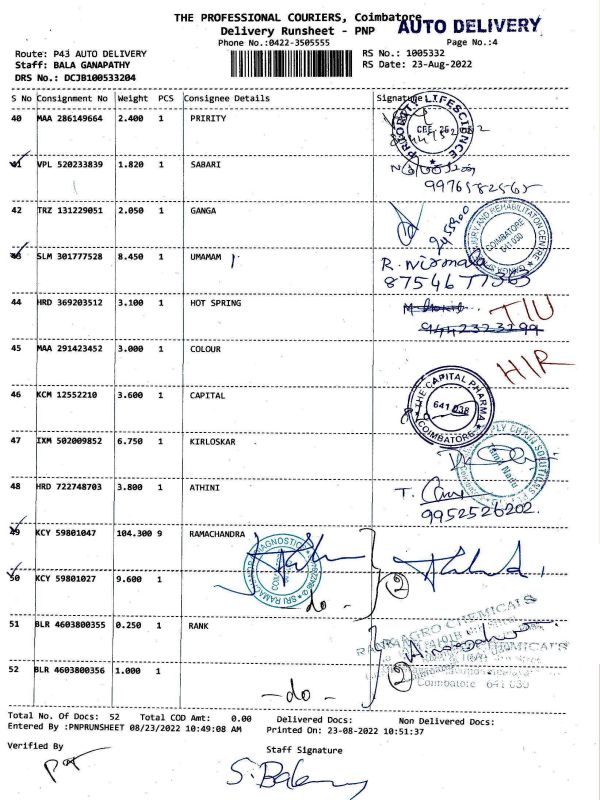 THE PROFESSIONAL COURIERS, Coimbatore
AUTO DELIVERY
Delivery Runsheet - PNP
Phone No.:0422-3505555
Page No.:4
Route: P43 AUTO DELIVERY
RS No.: 1005332
Staff: BALA GANAPATHY
RS Date: 23-Aug-2022
DRS No.: DCJB100533204
S No Consignment No Weight PCS Consignee Details Signature
40 MAA 286149664 2.400 1 PRIRITY
PRIORITY LIFESCIENCE
41 VPL 520233839 1.820 1 SABARI
9976582565
42 TRZ 131229051 2.050 1 GANGA
COIMBATORE
641 030
43 SLM 301777528 8.450 1 UMAMAM
R. Nirmala
87546 77363
44 HRD 369203512 3.100 1 HOT SPRING
TIU
45 MAA 291423452 3.000 1 COLOUR
HIR
46 KCM 12552210 3.600 1 CAPITAL
THE CAPITAL PHARMA
641 038
COIMBATORE
47 IXM 502009852 6.750 1 KIRLOSKAR
Tamil Nadu
48 HRD 722748703 3.800 1 ATHINI
T.
9952526202.
49 KCY 59801047 104.300 9 RAMACHANDRA
50 KCY 59801027 9.600 1
- do -
2
51 BLR 4603800355 0.250 1 RANK
AGRO CHEMICALS
52 BLR 4603800356 1.000 1
2
Coimbatore 641 030
- do -
Total No. Of Docs: 52 Total COD Amt: 0.00 Delivered Docs: Non Delivered Docs:
Entered By :PNPRUNSHEET 08/23/2022 10:49:08 AM Printed On: 23-08-2022 10:51:37
Verified By
Staff Signature